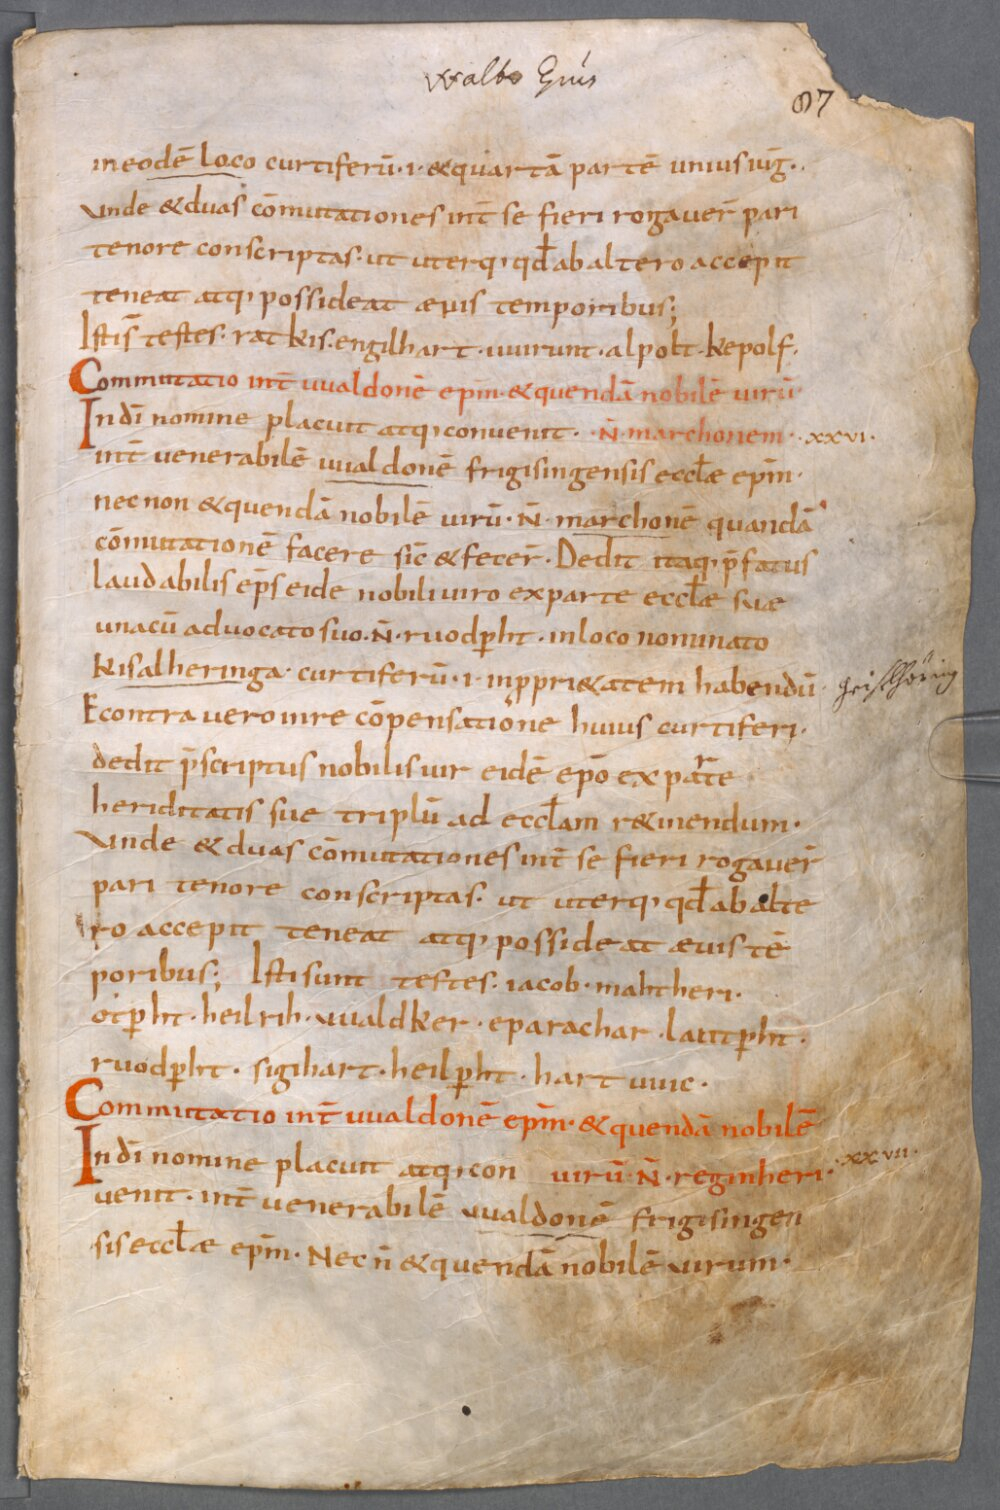 vvalbo Epūs
87
in eodē loco curtiferū · ı · & quartā partē unius iug̅ ·
Unde & duas cōmutationes int̄ se fieri rogauer̄ pari
tenore conscriptas · ut uterq; qđ ab altero accepit
teneat atq; possideat æuis temporibus;
Istis̄ testes · ratkis · engilhart · uuirunt · alpolt · kepolf ·
Commutatio int̄ uualdonē epm̄ · & quendā nobilē uirū
In dī nomine placuit atq; conuenit · N̄ · marchonem · xxvı ·
int̄ uenerabilē uualdonē frigisingensis eccłæ epm̄ ·
nec non & quendā nobilē uirū · N̄ · marchonē quandā
cōmutationē facere sic̄ & fecer̄ · Dedit itaq; p̄fatus
laudabilis ep̄s eide nobili uiro ex parte eccłæ suæ
una cū aduocato suo · N̄ · ruodpħt · in loco nominato
kisalheringa · curtiferū · ı · in ꝓpri&atem habendū ·
Geislhöring
E contra uero in re cōpensatione huius curtiferi ·
dedit p̄scriptus nobilis uir eidē epō ex parte
heriditatis sue triplū ad eccłam r&inendum ·
Unde & duas cōmutationes int̄ se fieri rogauer̄
pari tenore conscriptas · ut uterq; qđ ab alte
ro accepit teneat atq; possideat æuis tē
poribus; Isti sunt testes · iacob · mahtheri ·
otpħt · heilrih · uualdker · eparachar · lantpħt ·
ruodpħt · sigihart · heilpħt · hartuuic ·
Commutatio int̄ uualdonē epm̄ · & quendā nobilē
In dī nomine placuit atq; con uirū · N̄ · reginheri · xxvıı ·
uenit · int̄ uenerabilē uualdonē frigisingen
sis eccłæ epm̄ · Nec n̄ & quendā nobilē uirum ·